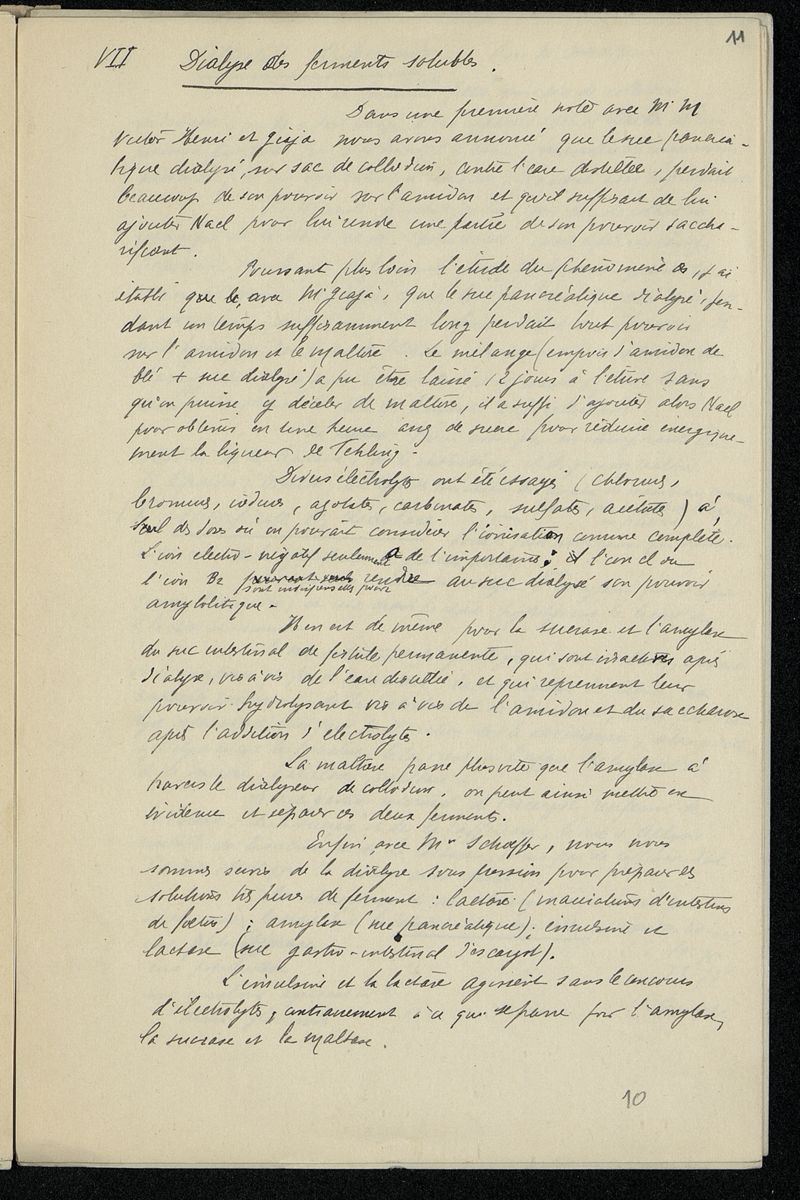 11
VII Dialyse des ferments solubles.
Dans une première note avec M M
Victor Henri et Giaja nous avons annoncé que le suc pancréa-
tique dialysé, sur sac de collodion, contre l'eau distillée, perdait
beaucoup de son pouvoir sur l'amidon et qu'il suffisait de lui
ajouter Nacl pour lui rendre une partie de son pouvoir saccha-
rifiant.
Poussant plus loin l'étude du phénomène, j'ai
établi que avec Mr Giaja, que le suc pancréatique dialysé, pen-
dant un temps suffisamment long perdait tout pouvoir
sur l'amidon et le maltose. Le mélange (empois d'amidon de
blé + suc dialysé) a pu être laissé 12 jours à l'étuve sans
qu'on puisse y déceler de maltose, il a suffi d'ajouter alors Nacl
pour obtenir en une heure assez de sucre pour réduire énergique-
ment la liqueur de Fehling.
Divers électrolytes ont été essayés (chlorures,
bromures, iodures, azotates, carbonates, sulfates, acétates) à
des doses où on pourrait considérer l'ionisation comme complète.
L'ion electro-négatif seulement a de l'importance; et l'ion cl ou
l'ion Bz sont indispensables pour rendre au suc dialysé son pouvoir
amylolitique.
Il en est de même pour la sucrase et l'amylase
du suc intestinal de fistule permanente, qui sont inactives après
dialyse, vis à vis de l'eau distillée, et qui reprennent leur
pouvoir hydrolysant vis à vis de l'amidon et du saccharose
après l'addition d'électrolytes.
La maltase passe plus vite que l'amylase à
travers le dialyseur de collodion. on peut ainsi mettre en
évidence et séparer ces deux ferments.
Enfin avec Mr Schaeffer, nous nous
sommes servis de la dialyse sous pression pour préparer des
solutions très pures de ferment: lactase (macérations d'intestins
de foetus); amylase (suc pancréatique); émulsine et
lactase (suc gastro-intestinal d'escargot).
L'émulsine et la lactase agissent sans le concours
d'électrolytes, contrairement à ce qui se passe pour l'amylase,
la sucrase et la maltase.
10